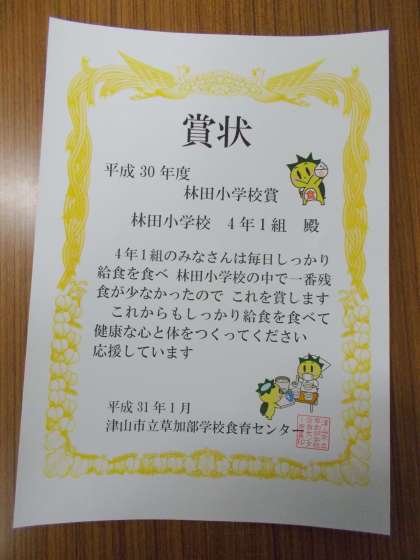 賞状
平成30年度
林田小学校賞
林田小学校 4年1組 殿
4年1組のみなさんは毎日しっかり
給食を食べ 林田小学校の中で一番残
食が少なかったので これを賞します
これからもしっかり給食を食べて
健康な心と体をつくってください
応援しています
平成31年1月
津山市立草加部学校食育センター